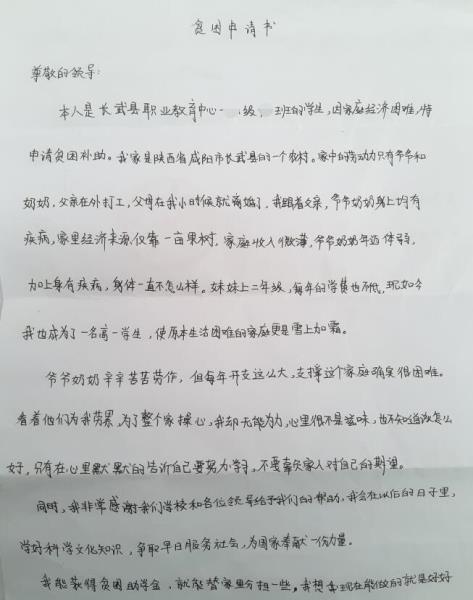 贫困申请书
尊敬的领导:
本人是长武县职业教育中心一 级 班的学生,因家庭经济困难,特
申请贫困补助。我家是陕西省咸阳市长武县的一个农村。家中的劳动力只有爷爷和
奶奶,父亲在外打工,父母在我小时候就离婚了,我跟着父亲,爷爷奶奶身上均有
疾病,家里经济来源仅靠一亩果树,家庭收入微薄,爷爷奶奶年迈体弱,
加上身有疾病,身体一直不怎么样。妹妹上二年级,每年的学费也不低,现如今
我也成为了一名高一学生,使原本生活困难的家庭更是雪上加霜。
爷爷奶奶辛辛苦苦劳作,但每年开支这么大,支撑这个家庭确实很困难。
看着他们为我劳累,为了整个家操心,我却无能为力,心里很不是滋味,也不知道该怎么
好,只有在心里默默的告诉自己要努力学习,不要辜负家人对自己的期望。
同时,我非常感谢我们学校和各位领导给予我们的帮助,我会在以后的日子里,
学好科学文化知识,争取早日服务社会,为国家奉献一份力量。
我能获得贫困助学金,就能替家里分担一些。我想我现在能做的就是好好